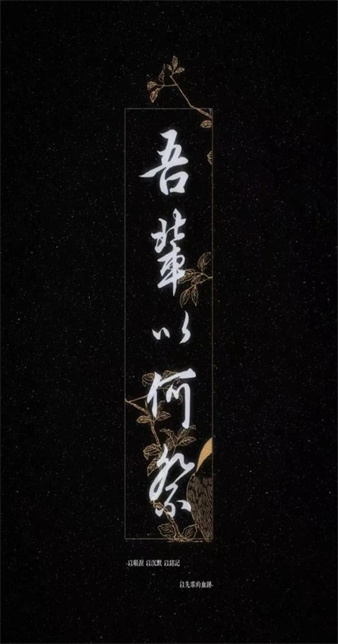 吾輩以何祭
·以眼淚 以沉默 以銘記
以先輩的血跡·